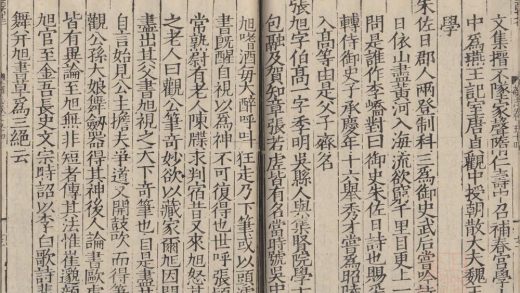 文集擅不墜家聲隋召補春宮學
中爲燕王記室唐貞觀中授朝散大夫魏
學
朱佐日郡人兩登制科三爲御史武后嘗吟
日依山盡黃河入海流欲窮千里目更上一
問是誰作李嶠對曰御史朱佐日詩也賜
轉侍御史子承慶年十六舉秀才嘗爲昭陵
入高等由是父子齊名
張旭字伯高一字季明吳縣人與集賢院學
包融及賀知章張若虛皆有名當時號吳中
旭嗜酒每大醉呼叫狂走乃下筆或以頭
書旣醒自視以爲神不可復得也世呼張顚
常熟尉有老人陳牒求判宿昔又來旭怒其
之老人曰觀公筆奇妙欲以藏家爾旭因問
盡出其父書旭視之天下奇筆也自是盡
自言始見公主擔夫爭道又聞鼓吹而得筆
觀公孫大娘舞劒器得其神後人論書歐
皆有異論至旭無非短者傳其法惟崔邈
旭官至金吾長史文宗時詔以李白歌詩
舞并旭草書爲三絕云